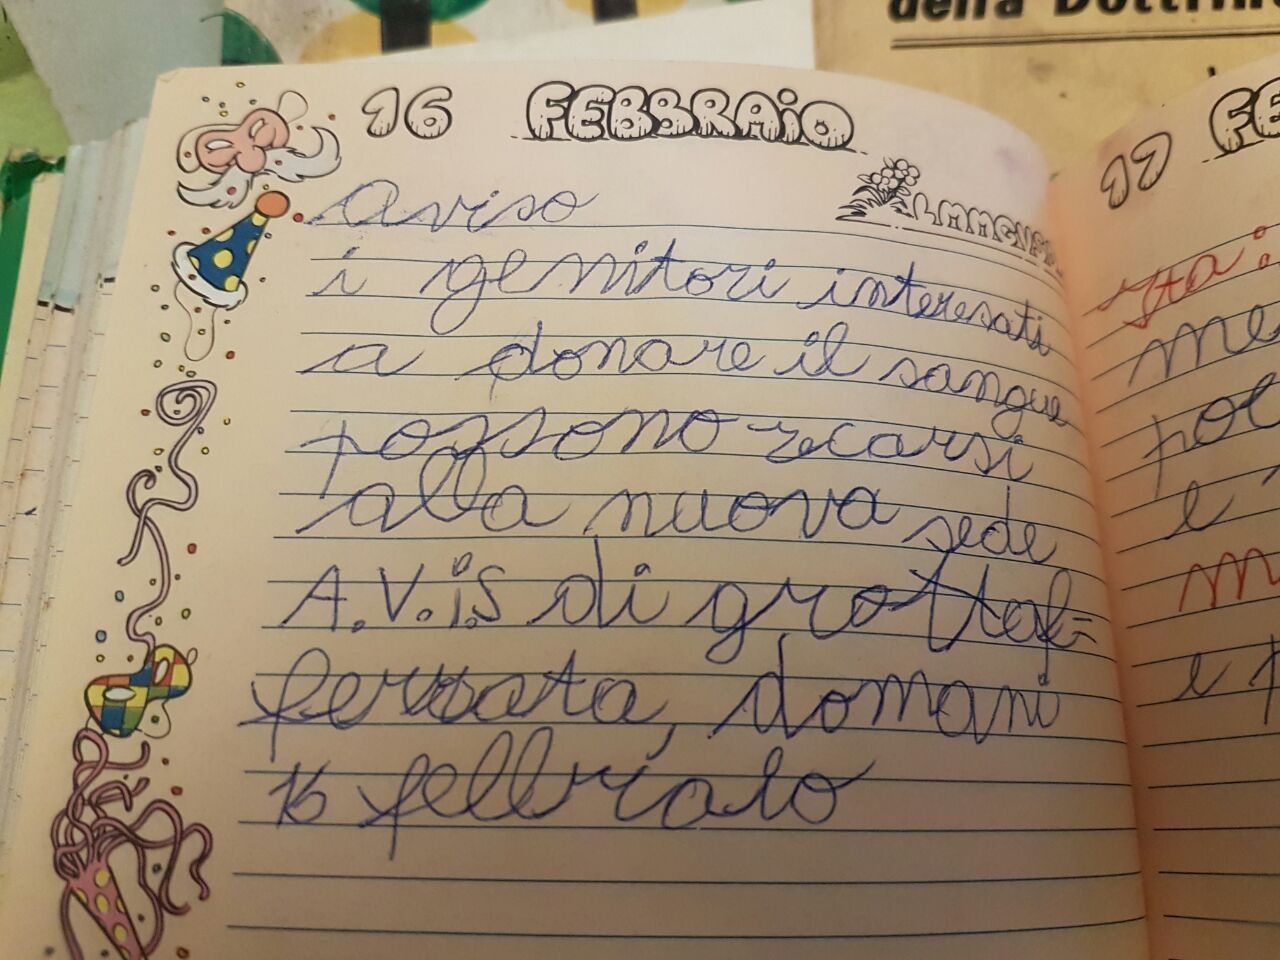 della Dottrin
16 FEBBRAIO
aviso
i genitori interesati
a donare il sangue
possono recarsi
alla nuova sede
A.V.i.S di grottaf=
ferrata, domani
16 febbraio
17 FE
me
pol
e
m
e p